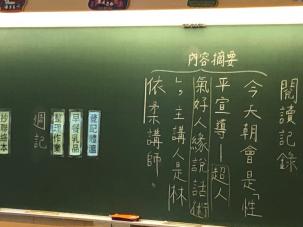 閱讀記錄
內容摘要
今天朝會是性
平宣導—超人
氣好人緣說話術
」,主講人是林
依柔講師。
登記禮儀
早餐乳品
整理作業
週記
抄聯絡本